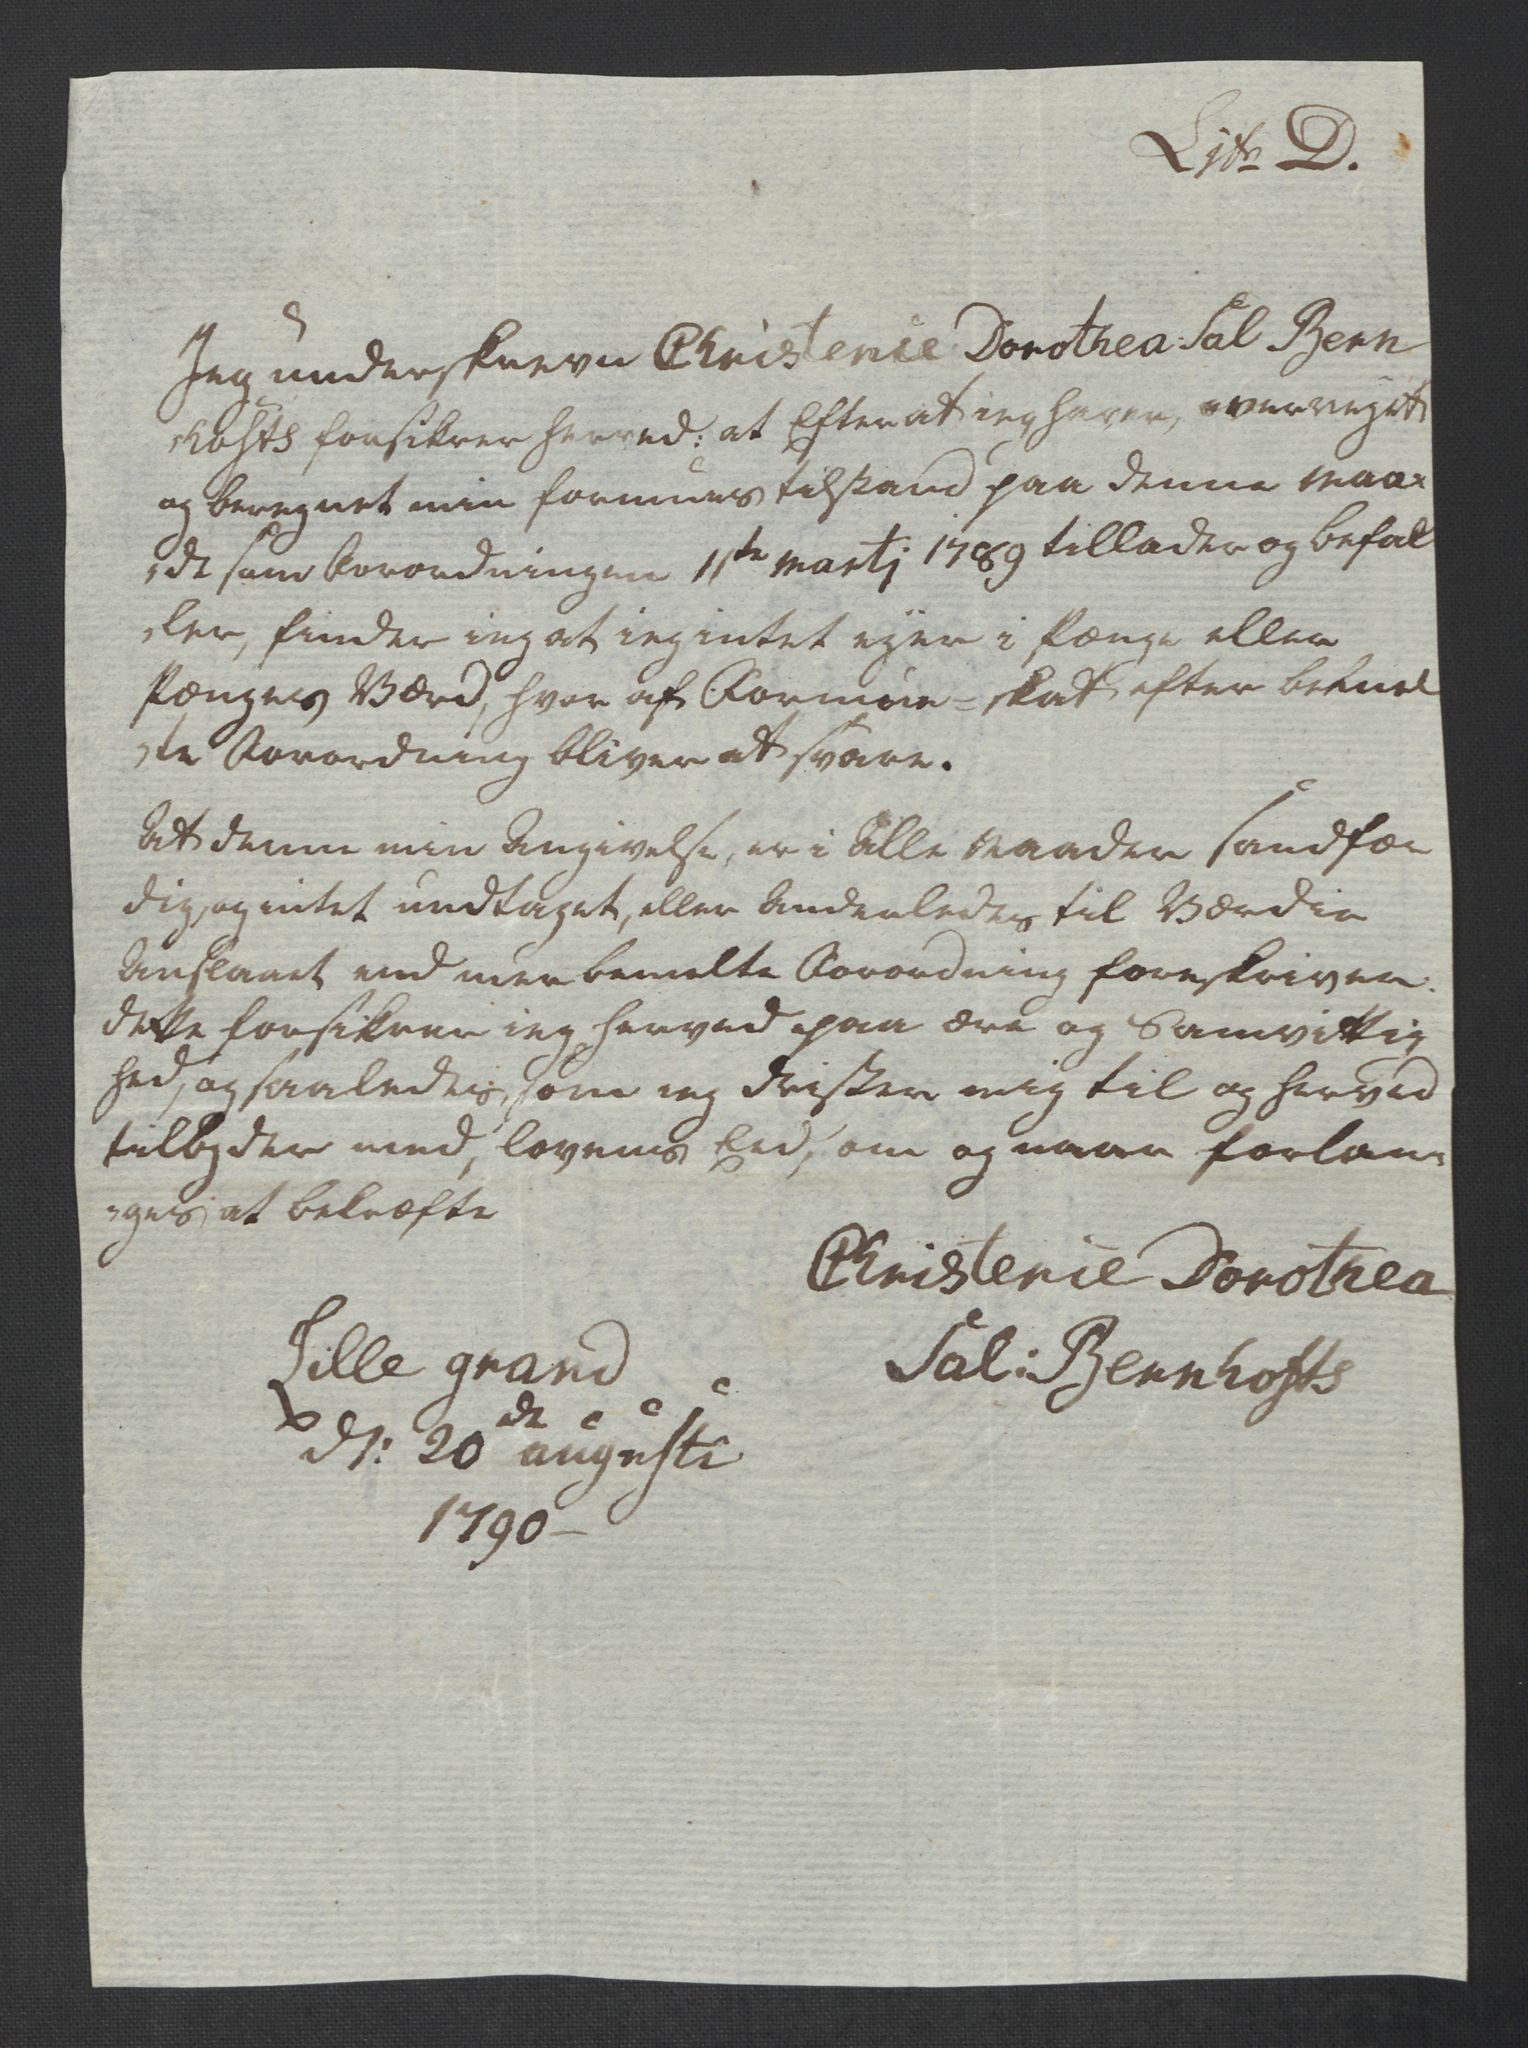 Litr D.
Jeg underskrevn Christence Dorothea Sal Bern
hofts forsikrer herved: at Efter at ieg haver, overveyet
og beregnet min formues tilstand paa denne maa-
de som Forordningen 11te martj 1789 tillader og befal
ler, finder ieg at ieg intet eyer i Penge eller
Penges Værd, hvor af Formue-skat efter bemel
te Forordning bliver at svare.
At denne min Angivelse, er i Alle Maader sandfær
dig, og intet undtaget, eller Anderledes til Værdie
Anslaaet end mer bemelte Forordning foreskriver.
dette forsikrer ieg herved paa ære og Samvittig
hed, og saaledes, som ieg drister mig til og herved
tilbyder med, lovens Eed, om og naar forlan-
ges at bekræfte
Christence Dorothea
Sal: Bernhofts
Lille grand
d: 20de augusti
1790